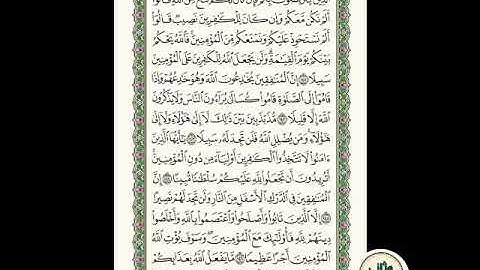 ٱلَّذِينَ يَتَرَبَّصُونَ بِكُمْ فَإِن كَانَ لَكُمْ فَتْحٌ مِّنَ ٱللَّهِ قَالُوٓا۟
أَلَمْ نَكُن مَّعَكُمْ وَإِن كَانَ لِلْكَٰفِرِينَ نَصِيبٌ قَالُوٓا۟
أَلَمْ نَسْتَحْوِذْ عَلَيْكُمْ وَنَمْنَعْكُم مِّنَ ٱلْمُؤْمِنِينَ فَٱللَّهُ يَحْكُمُ
بَيْنَكُمْ يَوْمَ ٱلْقِيَٰمَةِ وَلَن يَجْعَلَ ٱللَّهُ لِلْكَٰفِرِينَ عَلَى ٱلْمُؤْمِنِينَ
سَبِيلًا ۝١٤١ إِنَّ ٱلْمُنَٰفِقِينَ يُخَٰدِعُونَ ٱللَّهَ وَهُوَ خَٰدِعُهُمْ وَإِذَا
قَامُوٓا۟ إِلَى ٱلصَّلَوٰةِ قَامُوا۟ كُسَالَىٰ يُرَآءُونَ ٱلنَّاسَ وَلَا يَذْكُرُونَ
ٱللَّهَ إِلَّا قَلِيلًا ۝١٤٢ مُّذَبْذَبِينَ بَيْنَ ذَٰلِكَ لَآ إِلَىٰ هَٰٓؤُلَآءِ وَلَآ إِلَىٰ
هَٰٓؤُلَآءِ وَمَن يُضْلِلِ ٱللَّهُ فَلَن تَجِدَ لَهُۥ سَبِيلًا ۝١٤٣ يَٰٓأَيُّهَا ٱلَّذِينَ
ءَامَنُوا۟ لَا تَتَّخِذُوا۟ ٱلْكَٰفِرِينَ أَوْلِيَآءَ مِن دُونِ ٱلْمُؤْمِنِينَ
أَتُرِيدُونَ أَن تَجْعَلُوا۟ لِلَّهِ عَلَيْكُمْ سُلْطَٰنًا مُّبِينًا ۝١٤٤ إِنَّ
ٱلْمُنَٰفِقِينَ فِى ٱلدَّرْكِ ٱلْأَسْفَلِ مِنَ ٱلنَّارِ وَلَن تَجِدَ لَهُمْ نَصِيرًا
۝١٤٥ إِلَّا ٱلَّذِينَ تَابُوا۟ وَأَصْلَحُوا۟ وَٱعْتَصَمُوا۟ بِٱللَّهِ وَأَخْلَصُوا۟
دِينَهُمْ لِلَّهِ فَأُو۟لَٰٓئِكَ مَعَ ٱلْمُؤْمِنِينَ وَسَوْفَ يُؤْتِ ٱللَّهُ
ٱلْمُؤْمِنِينَ أَجْرًا عَظِيمًا ۝١٤٦ مَّا يَفْعَلُ ٱللَّهُ بِعَذَابِكُمْ